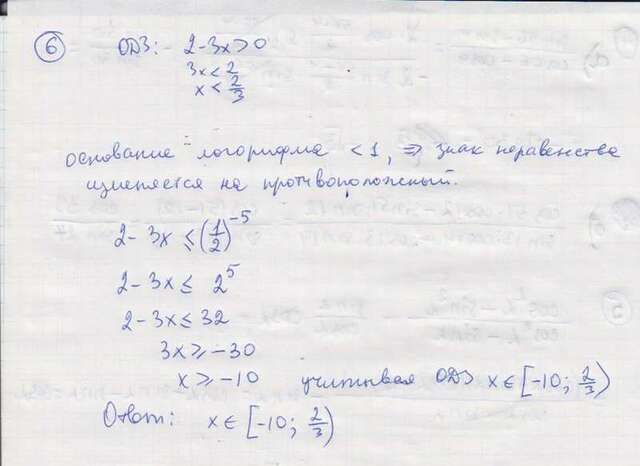 6 ОДЗ: 2-3x>0
3x<2
x<2/3
основание логорифма <1, ⇒ знак неравенства
изменяется на противоположный.
2-3x≤(1/2)^-5
2-3x≤ 2^5
2-3x≤32
3x≥-30
x≥-10 учитывая ОДЗ x∈[-10; 2/3)
Ответ: x∈[-10; 2/3)